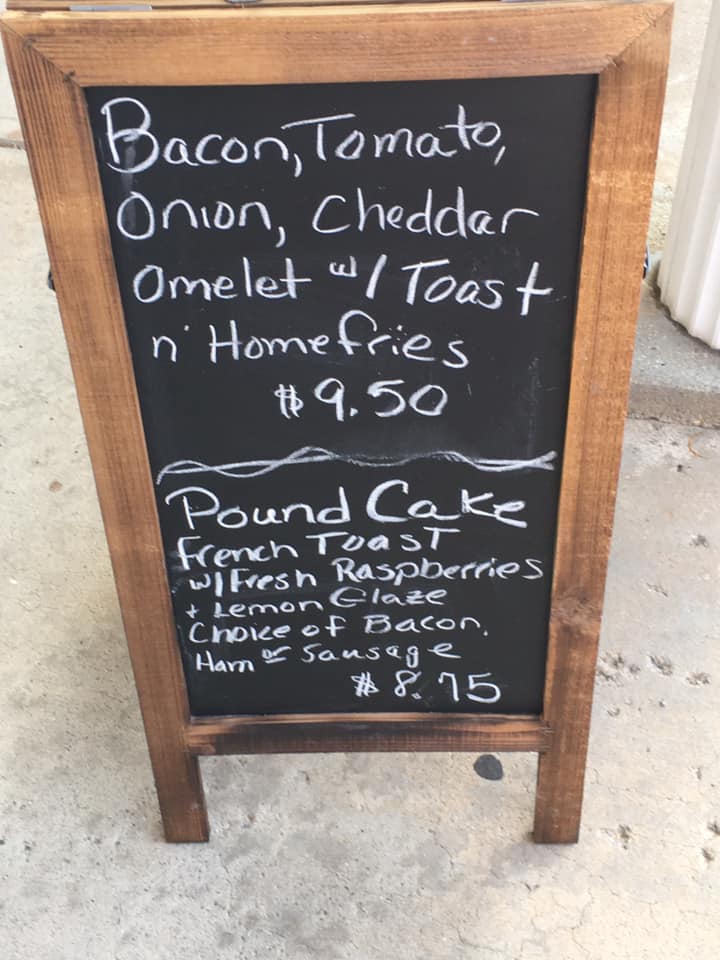 Bacon, Tomato,
Onion, Cheddar
Omelet w/ Toast
n' Homefries
$9.50
Pound Cake
French Toast
w/ Fresh Raspberries
+ Lemon Glaze
Choice of Bacon,
Ham or Sausage
$8.75